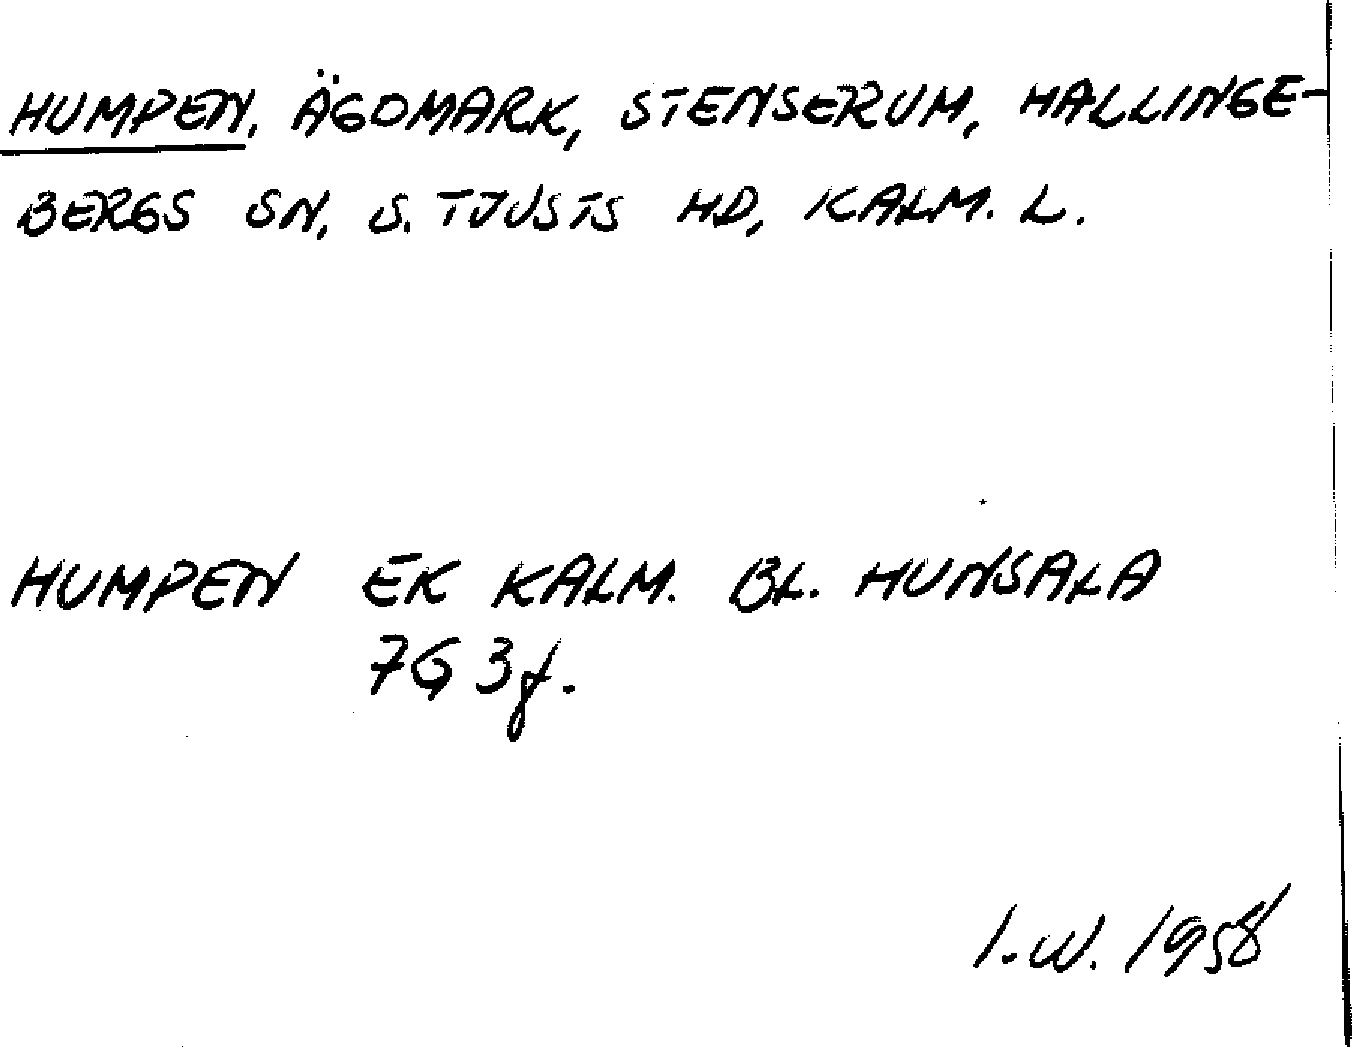 HUMPEN, ÄGOMARK, STENSERUM, HALLINGE-
BERGS SN, S. TJUSTS HD, KALM. L.
HUMPEN EK KALM. BL. HUNSALA
7G 3f.
I.W. 1958